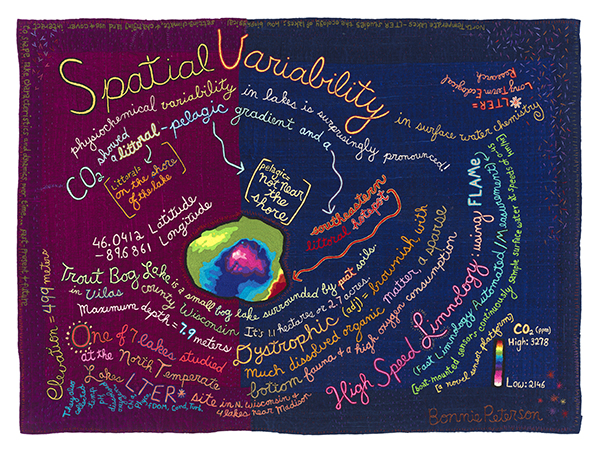 North Temperate Lakes - LTER studies the ecology of lakes; how biological,
Spatial Variability in surface water chemistry
physiochemical variability in lakes is surprisingly pronounced!
CO2 showed a littoral-pelagic gradient and a
southeastern
littoral hotspot
[Littoral= on the shore of the lake]
[pelagic= not near the shore]
LTER=*
Long Term Ecological
Research
46.0412 Latitude
-89.6861 Longitude
Trout Bog Lake is a small bog lake surrounded by peat soils
in Vilas county Wisconsin It's 1.1 hectares or 2.7 acres.
Maximum depth = 7.9 meters
Elevation = 499 meters
Dystrophic (adj)= brownish with
much dissolved organic matter a sparse
bottom fauna & a high oxygen consumption
One of 7 lakes studied
at the North Temperate
Lakes LTER* site in N. Wisconsin &
4 lakes near Madison
High Speed Limnology: using FLAMe
(Fast Limnology Automated Measurements)
(boat-mounted sensor, continuously sample surface water @ speeds of
(a novel sensor platform)
CO2 (ppm)
High: 3278
Low: 2146
Bonnie Peterson